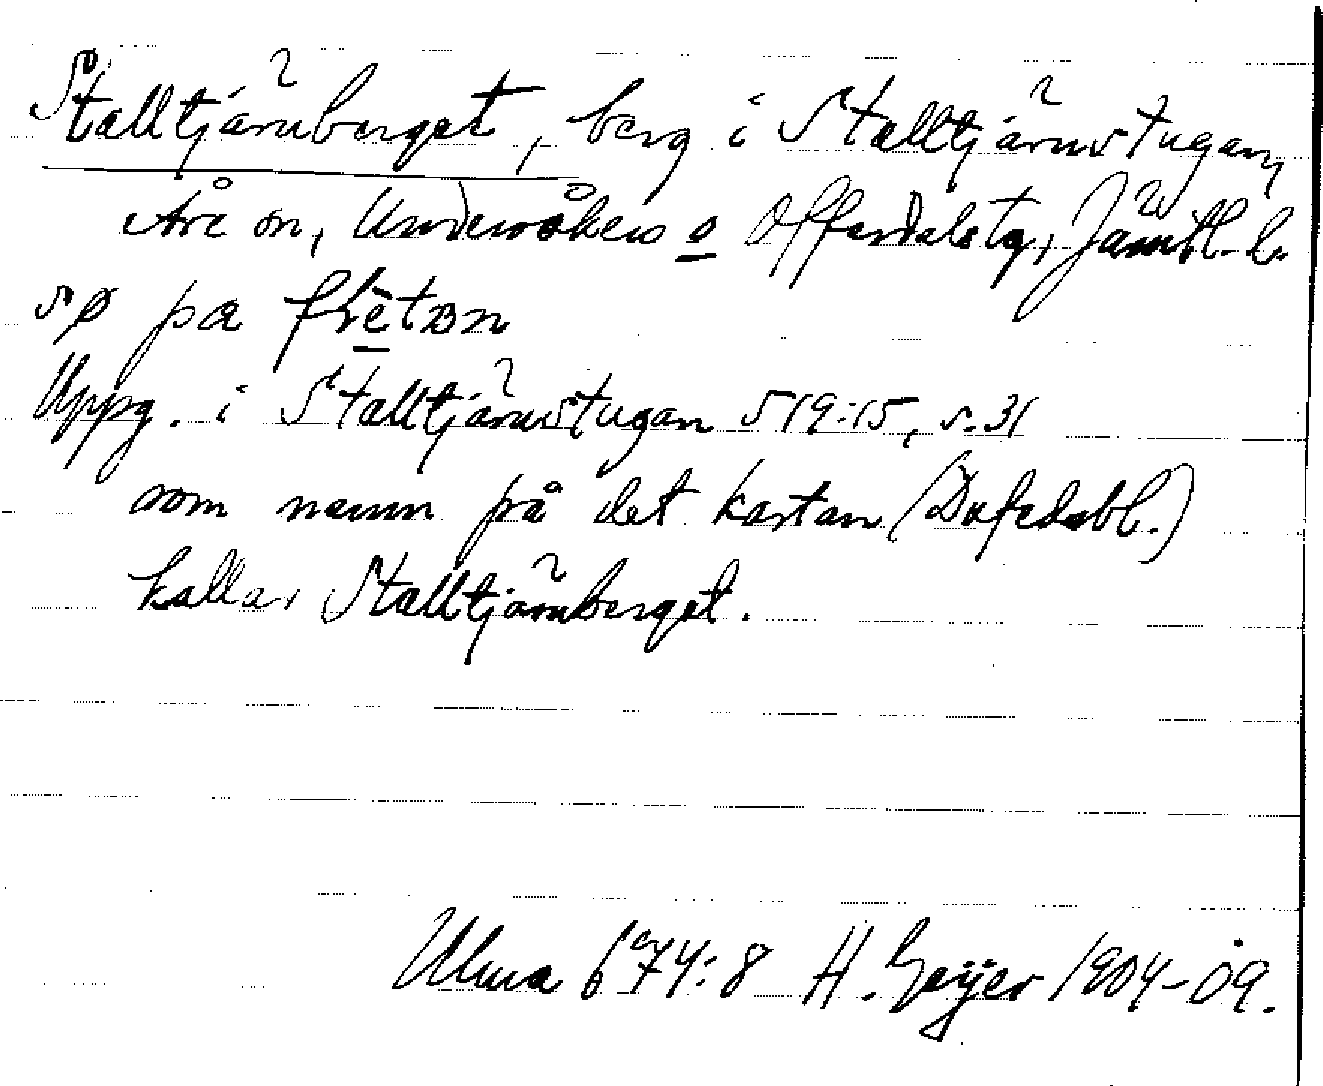 Stalltjärnberget, berg i Stalltjärnstugan,
Åre sn, Undersåkers o Offerdals tg, Jämtl. l.
sp på flèt
Uppg. i Stalltjärnstugan 519:15, s. 31
som namn på det kartan (Dufedsbl.)
kallar Stalltjärnberget.
Ulma 674:8 H. Geijer 1904-09.